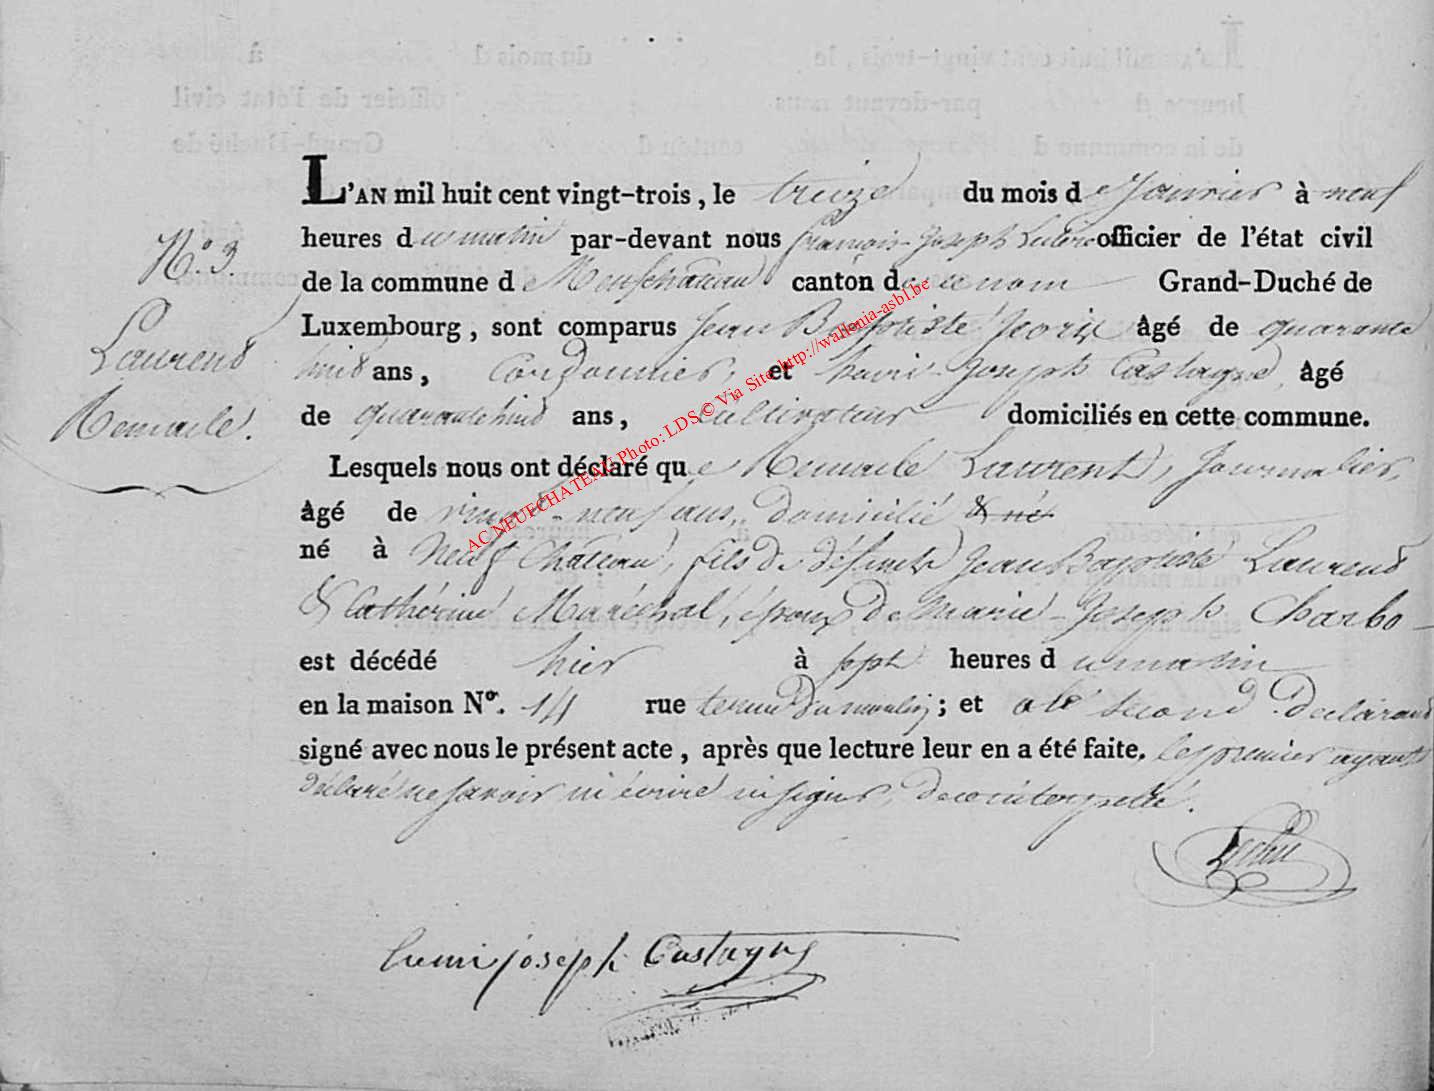 N.° 3.
Laurend
Remacle.
L'AN mil huit cent vingt-trois, le treize du mois de Janvier à neuf
heures du matin par-devant nous françois-Joseph officier de l'état civil
de la commune de Neufchateau canton du Grand-Duché de
Luxembourg, sont comparus Jean Baptiste âgé de quarante
huit ans, Cordonnier, et henri-Joseph Castagne, âgé
de quarantehuit ans, cultivateur domiciliés en cette commune.
Lesquels nous ont déclaré que Remacle Laurent, Journalier,
âgé de vingt-neuf ans, domicilié & né
né à Neufchâteau, fils de défunts Jean Baptiste Laurend
& Cathérine Maréchal, époux de Marie-Joseph Charbo-
est décédé hier à sept heures du matin
en la maison N°. 14 rue du moulin; et a le second déclarant
signé avec nous le présent acte, après que lecture leur en a été faite. le premier ayant
déclaré ne savoir ni écrire ni signer, de ce interpellé.
henri joseph Castagne
AC NEUFCHATEAU Photo: LDS © Via Site http://wallonia-asbl.be